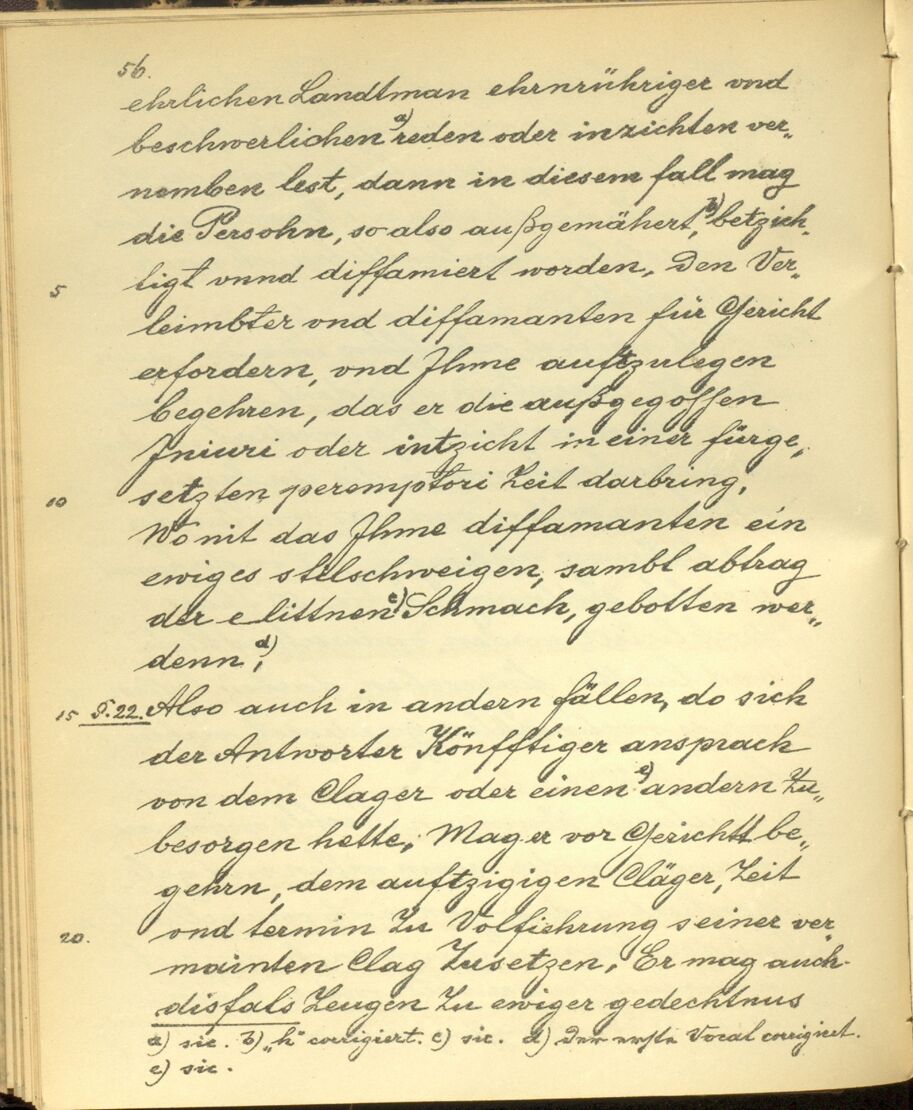 56.
ehrlichen Landtman ehrnrühriger vnd
beschwerlichen a) reden oder inzichten ver„
nemben lest, dann in diesem fall mag
die Persohn, so also außgemähert, b) betzich„
tigt vnnd diffamiert worden, Den Ver„
5
leimbter vnd diffamanten für Gericht
erfordern, vnd Jhme auftzulegen
begehren, das er die außgegossen
Jniuri oder intzicht in einer fürge„
setzten peremptori Zeit darbring,
10
Wo nit das Jhme diffamanten ein
ewiges stilschweigen, sambt abtrag
der elittnen c) Schmach, gebotten wer„
denn, d)
15 F. 22. Also auch in andern fällen, do sich
der Antworter Könfftiger ansprach
von dem Clager oder einen e) andern Zu„
besorgen hette, Mag er vor Gericht be„
gehrn, dem auftzigigen Cläger, Zeit
20. vnd termin Zu Volfiehrung seiner ver„
mainten Clag Zusetzen, Er mag auch
disfals Zeugen Zu ewiger gedechtnus
a) sic. b) „h“ corrigiert. c) sic. d) Der erste Vocal corrigiert.
e) sic.